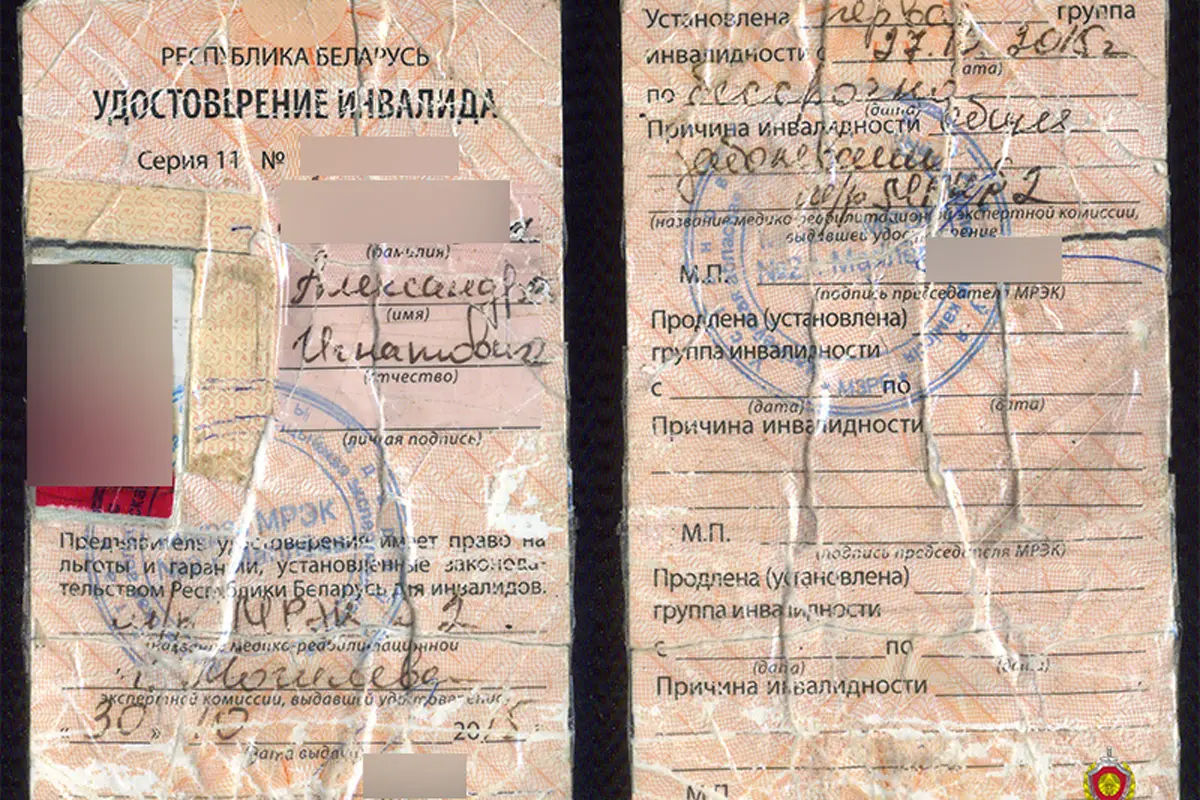 РЕСПУБЛИКА БЕЛАРУСЬ
УДОСТОВЕРЕНИЕ ИНВАЛИДА
Серия 11 №
(фамилия)
Александра
(имя)
Игнатовна
(отчество)
(личная подпись)
МРЭК
Предъявитель удостоверения имеет право на
льготы и гарантии, установленные законода-
тельством Республики Беларусь для инвалидов.
МРЭК 2
(название медико-реабилитационной
г. Могилева
экспертной комиссии, выдавшей удостоверение)
"30" 10 2015
(дата выдачи)
Установлена перва группа
инвалидности с 27.10.2015г
(дата)
по бессрочно
(дата)
Причина инвалидности общее
заболевание
МРЭК 2
(название медико-реабилитационной экспертной комиссии,
выдавшей удостоверение
М.П.
(подпись председателя МРЭК)
Продлена (установлена)
группа инвалидности
с по
(дата) (дата)
Причина инвалидности
М.П.
(подпись председателя МРЭК)
Продлена (установлена)
группа инвалидности
с по
(дата) (дата)
Причина инвалидности
М.П.